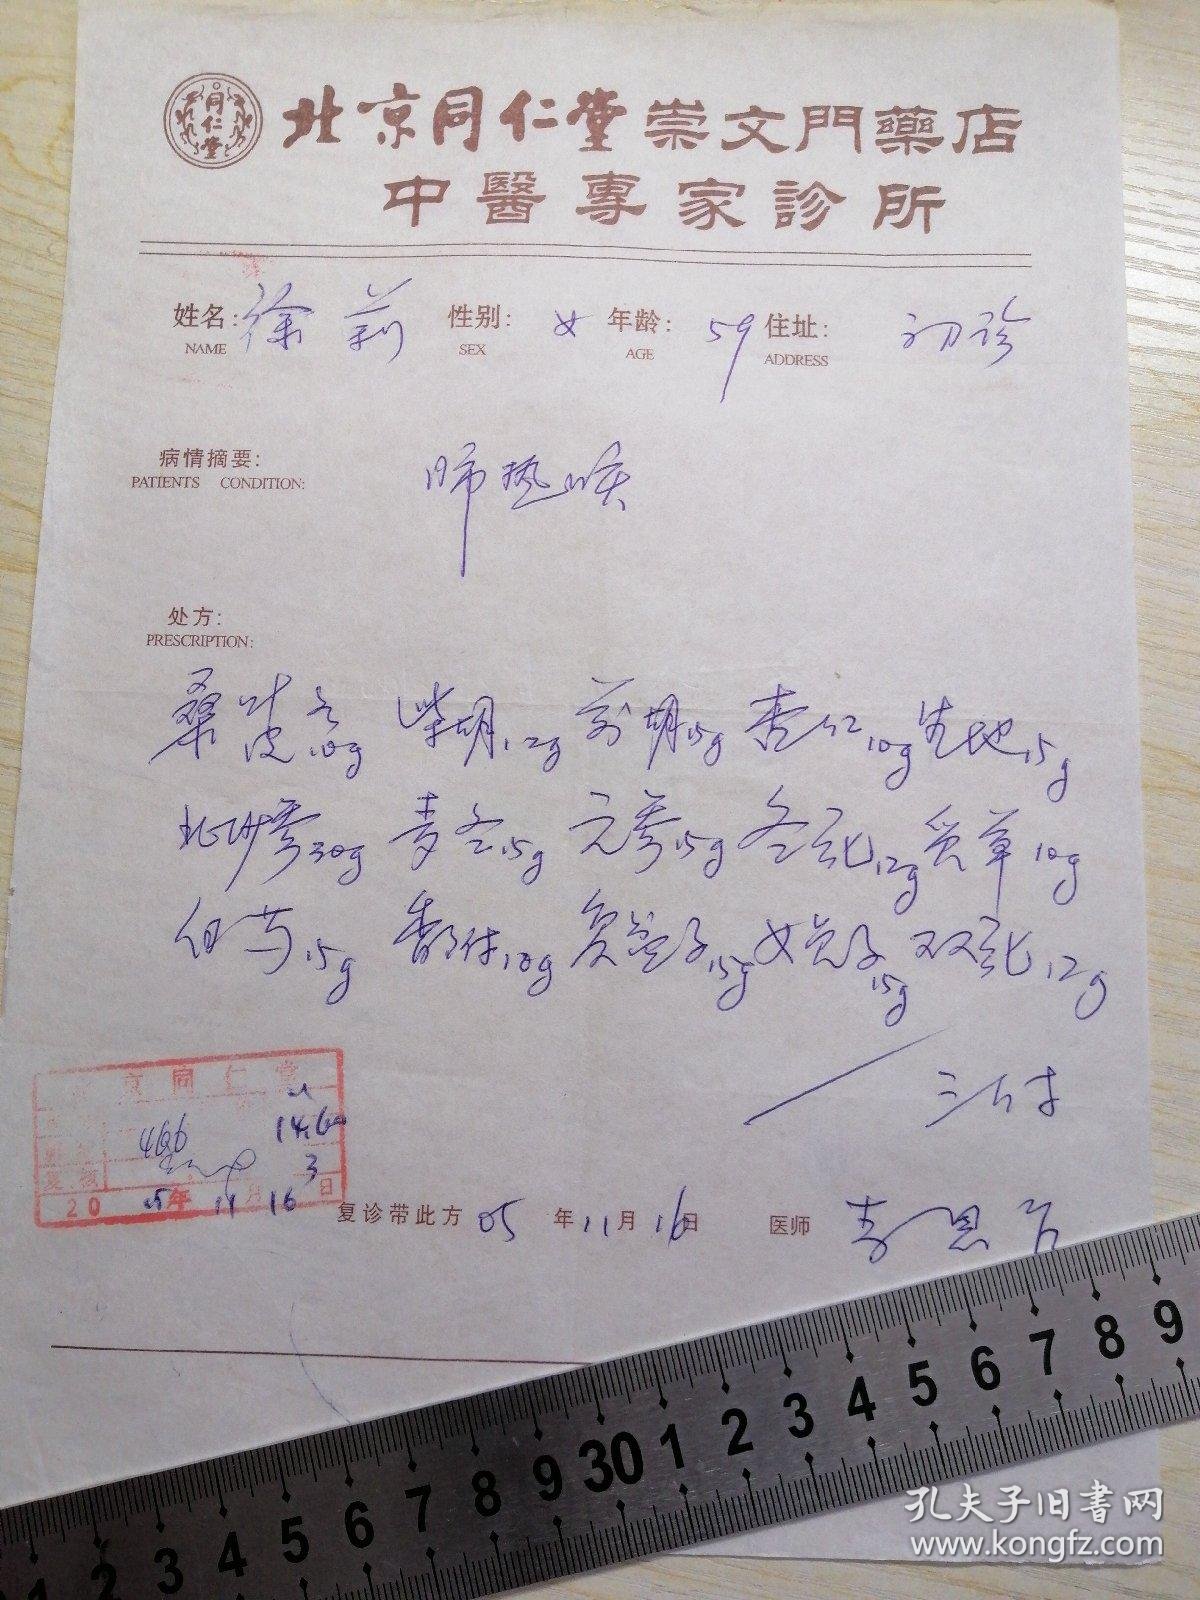 同仁堂
北京同仁堂崇文門藥店
中醫專家診所
姓名: 徐莉 性别: 女 年龄: 59 住址: 初诊
NAME SEX AGE ADDRESS
病情摘要:
PATIENTS CONDITION:
肺热咳
处方:
PRESCRIPTION:
桑叶皮各10g 柴胡12g 前胡15g 杏仁10g 生地15g
北沙参30g 麦冬15g 元参15g 冬花12g 10g
白芍15g 香附10g 复盆子15g 女贞子15g 双花12g
三付
京同仁堂
466 14.60
3
复核
20 05年 11月 16日
复诊带此方 05年11月16日 医师 李思
1 2 3 4 5 6 7 8 9 30 1 2 3 4 5 6 7 8 9
孔夫子旧書网
www.kongfz.com